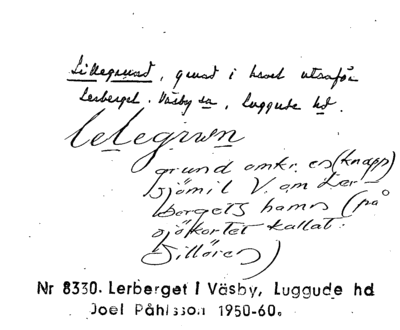 Lillegrund, grund i havet utanför
Lerberget. Väsby sn, Luggude hd.
lelegrun
grund omkr. en (knapp)
sjömil V. om Ler-
bergets hamn (på
sjökortet kallat:
Sillören)
Nr 8330. Lerberget i Väsby, Luggude hd
Joel Påhlsson 1950-60.